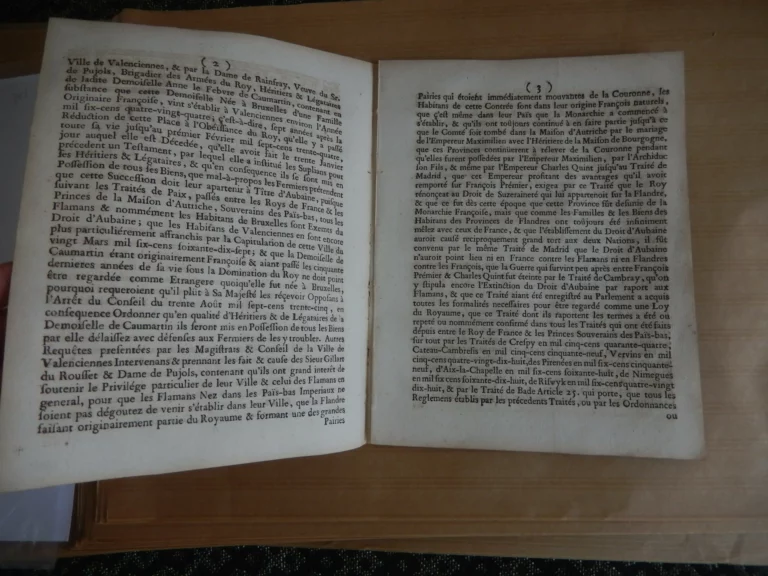 ( 2 )
Ville de Valenciennes, & par la Dame de Rainsray, Veuve du Sr.
de Pujols, Brigadier des Armées du Roy, Héritiers & Légataires
de ladite Demoiselle Anne le Febvre de Caumartin, contenant en
substance que cette Demoiselle Née à Bruxelles d'une Famille
Originaire Françoise, vint s'établir à Valenciennes environ l'Année
mil six-cens quatre-vingt-quatre, c'est-à-dire, sept années après la
Réduction de cette Place à l'Obéissance du Roy, qu'elle y a passé
toute sa vie jusqu'au prémier Février mil sept-cens trente-quatre,
jour auquel elle est Décedée, qu'elle avoit fait le trente Janvier
précedent un Testament, par lequel elle a institué les Suplians pour
ses Héritiers & Légataires, & qu'en consequence ils se sont mis en
Possession de tous les Biens, que mal-à-propos les Fermiers prétendent
que cette Succession doit leur apartenir à Titre d'Aubaine, puisque
suivant les Traités de Paix, passés entre les Roys de France & les
Princes de la Maison d'Autriche, Souverains des Païs-bas, tous les
Flamans & nommément les Habitans de Bruxelles sont Exemts du
Droit d'Aubaine; que les Habitans de Valenciennes en sont encore
plus particuliérement affranchis par la Capitulation de cette Ville du
vingt Mars mil six-cens soixante-dix-sept; & que la Demoiselle de
Caumartin étant originairement Françoise & aïant passé les cinquante
dernieres années de sa vie sous la Domination du Roy ne doit point
être regardée comme Etrangere quoiqu'elle fut née à Bruxelles,
pourquoi requeroient qu'il plût à Sa Majesté les réçevoir Opposans à
l'Arrêt du Conseil du trente Août mil sept-cens trente-cinq, en
consequence Ordonner qu'en qualité d'Héritiers & de Légataires de la
Demoiselle de Caumartin ils seront mis en Possession de tout les Biens
par elle délaissez avec défenses aux Fermiers de les y troubler. Autres
Requêtes presentées par les Magistrats & Conseil de la Ville de
Valenciennes Intervenans & prennans les fait & cause des Sieur Gillart
du Rousset & Dame de Pujols, contenant qu'ils ont grand interêt de
soutenir le Privilége particulier de leur Ville & celui des Flamans en
general, pour que les Flamans Nez dans les Païs-bas Imperiaux ne
soient pas dégoutez de venir s'établir dans leur Ville, que la Flandre
faisant originairement partie du Royaume & formant une des grandes
Pairies
( 3 )
Pairies qui étoient immédiatement mouvantes de la Couronne, les
Habitans de cette Contrée sont dans leur origine François naturels,
que c'est même dans leur Païs que la Monarchie a commencé à
s'établir, & qu'ils ont toûjours continué à en faire partie jusqu'à ce
que le Comté soit tombé dans la Maison d'Autriche par le mariage
de l'Empereur Maximilien avec l'Héritiere de la Maison de Bourgogne,
que ces Provinces continuérent à rélever de la Couronne pendant
qu'elles furent possedées par l'Empereur Maximilien, par l'Archiduc
son Fils, & même par l'Empereur Charles Quint jusqu'au Traité de
Madrid, que cet Empereur profitant des avantages qu'il avoit
remporté sur François Prémier, exigea par ce Traité que le Roy
rénonçât au Droit de Suzeraineté qui lui appartenoit sur la Flandre,
& que ce fut dès cette époque que cette Province fût desunie de la
Monarchie Françoise, mais que comme les Familles & les Biens des
Habitans des Provinces de Flandres ont toûjours été infiniment
mêlez avec ceux de France, & que l'établissement du Droit d'Aubaine
auroit causé réciproquement grand tort aux deux Nations, il fût
convenu par le même Traité de Madrid que le Droit d'Aubaine
n'auroit point lieu ni en France contre les Flamans ni en Flandres
contre les François, que la Guerre qui survint peu après entre François
Prémier & Charles Quint fut éteinte par le Traité de Cambray, qu'on
y stipula encore l'Extinction du Droit d'Aubaine par raport aux
Flamans, & que ce Traité aïant été enregistré au Parlement a acquis
toutes les formalités necessaires pour être regardé comme une Loy
du Royaume, que ce Traité dont ils raportent les termes a été ou
repeté ou nommément confirmé dans tous les Traités qui ont été faits
depuis entre le Roy de France & les Princes Souverains des Païs-bas,
sur tout par les Traités de Crespy en mil cinq-cens quarante-quatre,
Cateau-Cambresis en mil cinq cens cinquante-neuf, Vervins en mil
cinq-cens quatre-vingt-dix-huit, des Pirenées en mil six-cens cinquante-
neuf, d'Aix-la-Chapelle en mil six-cens soixante-huit, de Nimegues
en mil six cens soixante-dix-huit, de Riswyk en mil six-cens quatre-vingt
dix-huit, & par le Traité de Bade Article 25. qui porte, que tous les
Reglement établis par les précedents Traités, ou par les Ordonnances
ou